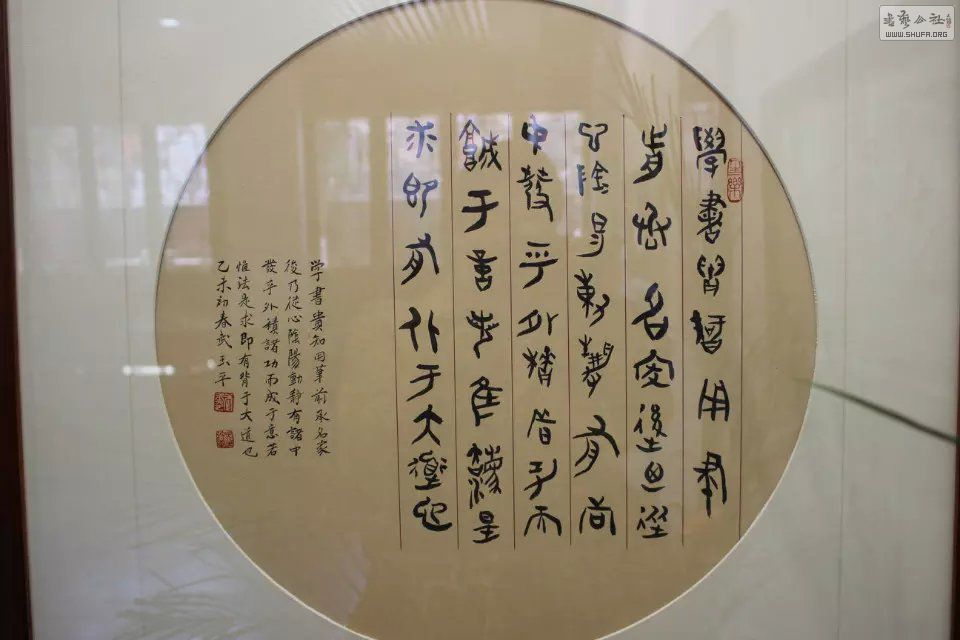 學書貴智用筆
前承名家後乃從
心陰陽動靜有諸
中發乎外積諸功而
成于意若惟法是
求即有背于大道也
学書貴知用筆前承名家
後乃從心陰陽動靜有諸中
發乎外積諸功而成于意若
惟法是求即有背于大道也
乙未初春武玉平
書藝公社
WWW.SHUFA.ORG